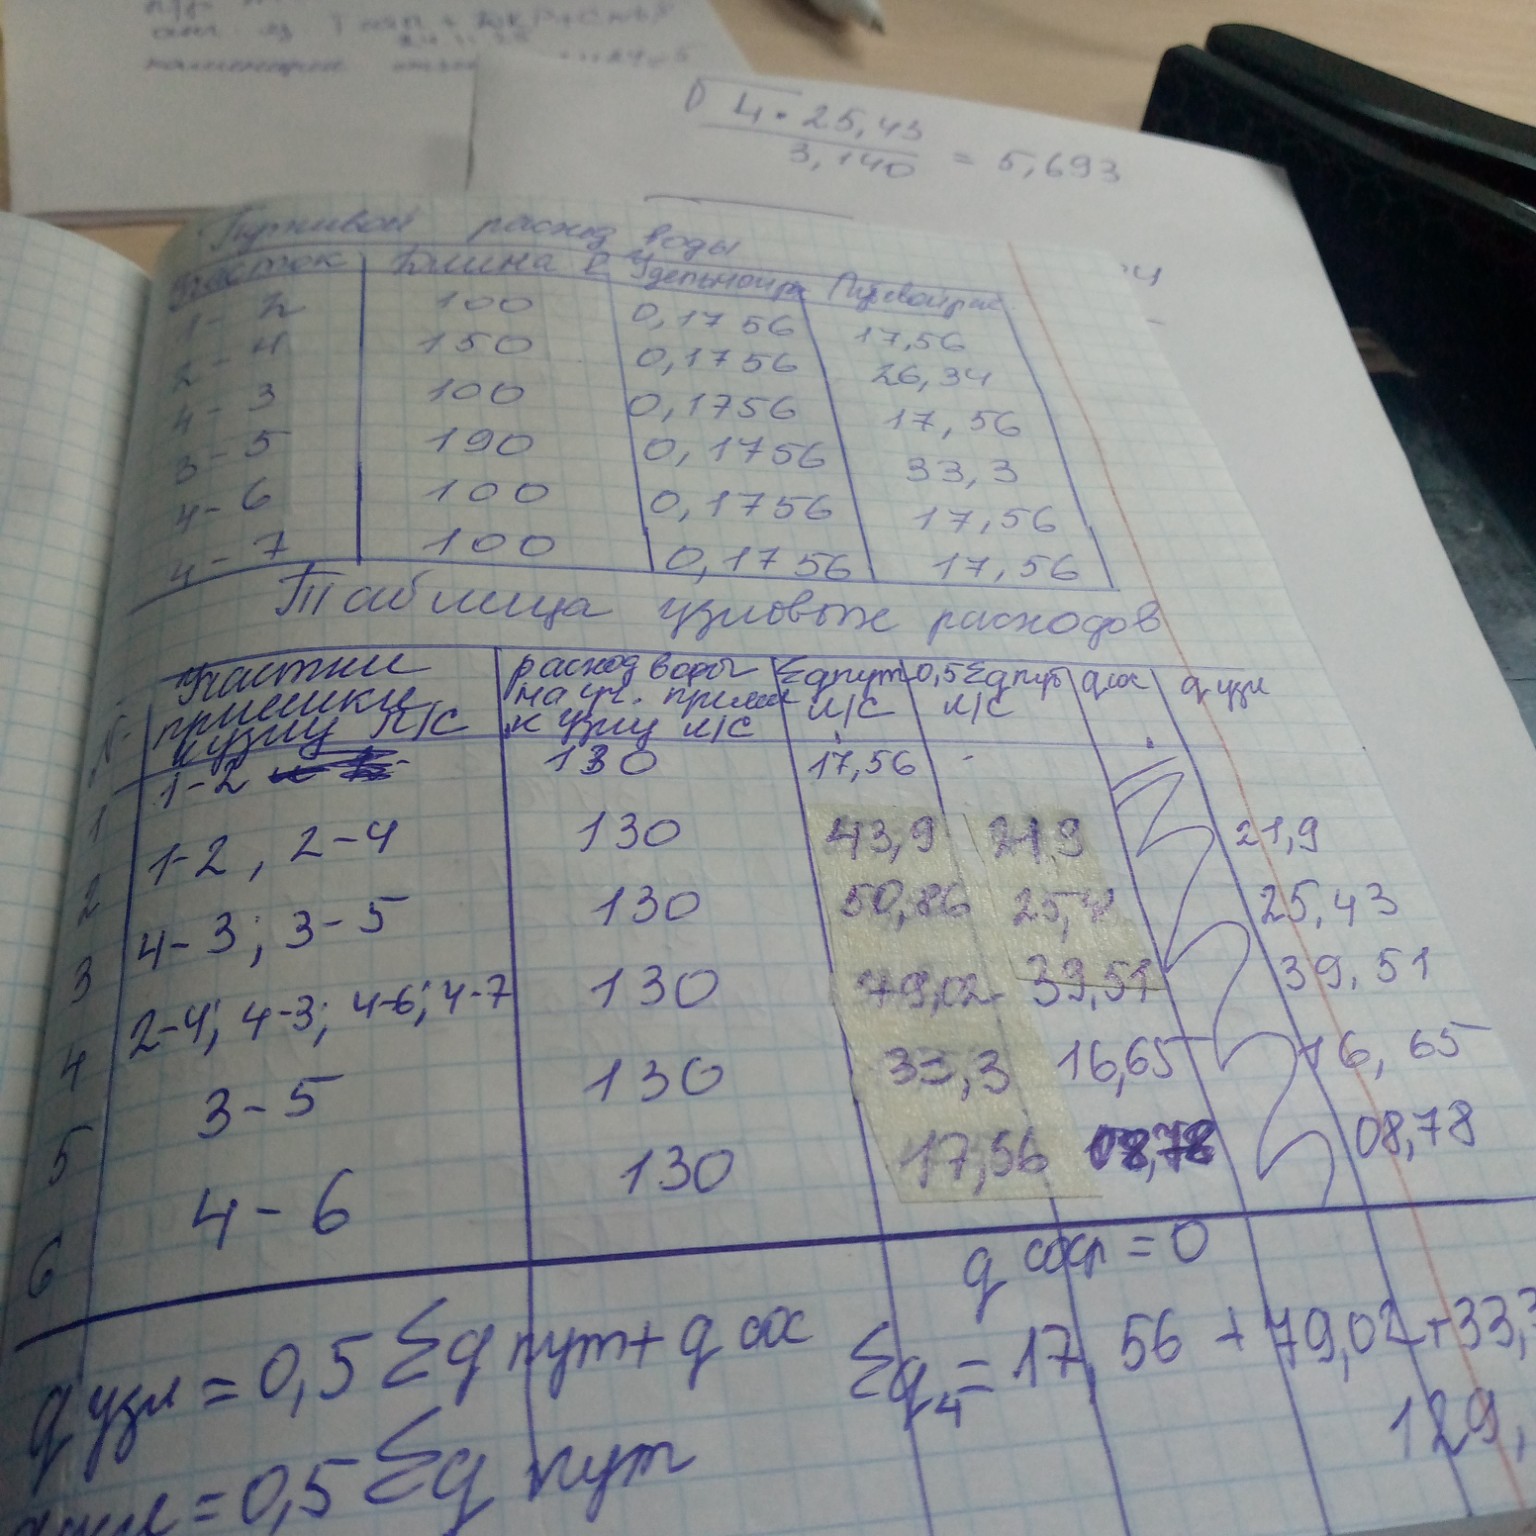 4 · 25,43
3,140 = 5,693
расход воды
Участок Длина Удельной Путевой рас
1-2 100 0,1756 17,56
2-4 150 0,1756 26,34
4-3 100 0,1756 17,56
3-5 190 0,1756 33,3
4-6 100 0,1756 17,56
4-7 100 0,1756 17,56
Таблица узловых расходов
Участки расход воды Σqпут 0,5Σqпут qсос qузл
на уч. л/с л/с
к узлу л/с к узлу л/с
1 1-2 130 17,56 -
2 1-2, 2-4 130 43,9 21,9 21,9
3 4-3; 3-5 130 50,86 25,4 25,43
4 2-4; 4-3; 4-6; 4-7 130 79,02 39,51 39,51
5 3-5 130 33,3 16,65 16,65
6 4-6 130 17,56 08,78 08,78
q соср = 0
q узл = 0,5 Σq пут + q сос Σq4 = 17,56 + 79,02 + 33,3
129,
= 0,5 Σq пут